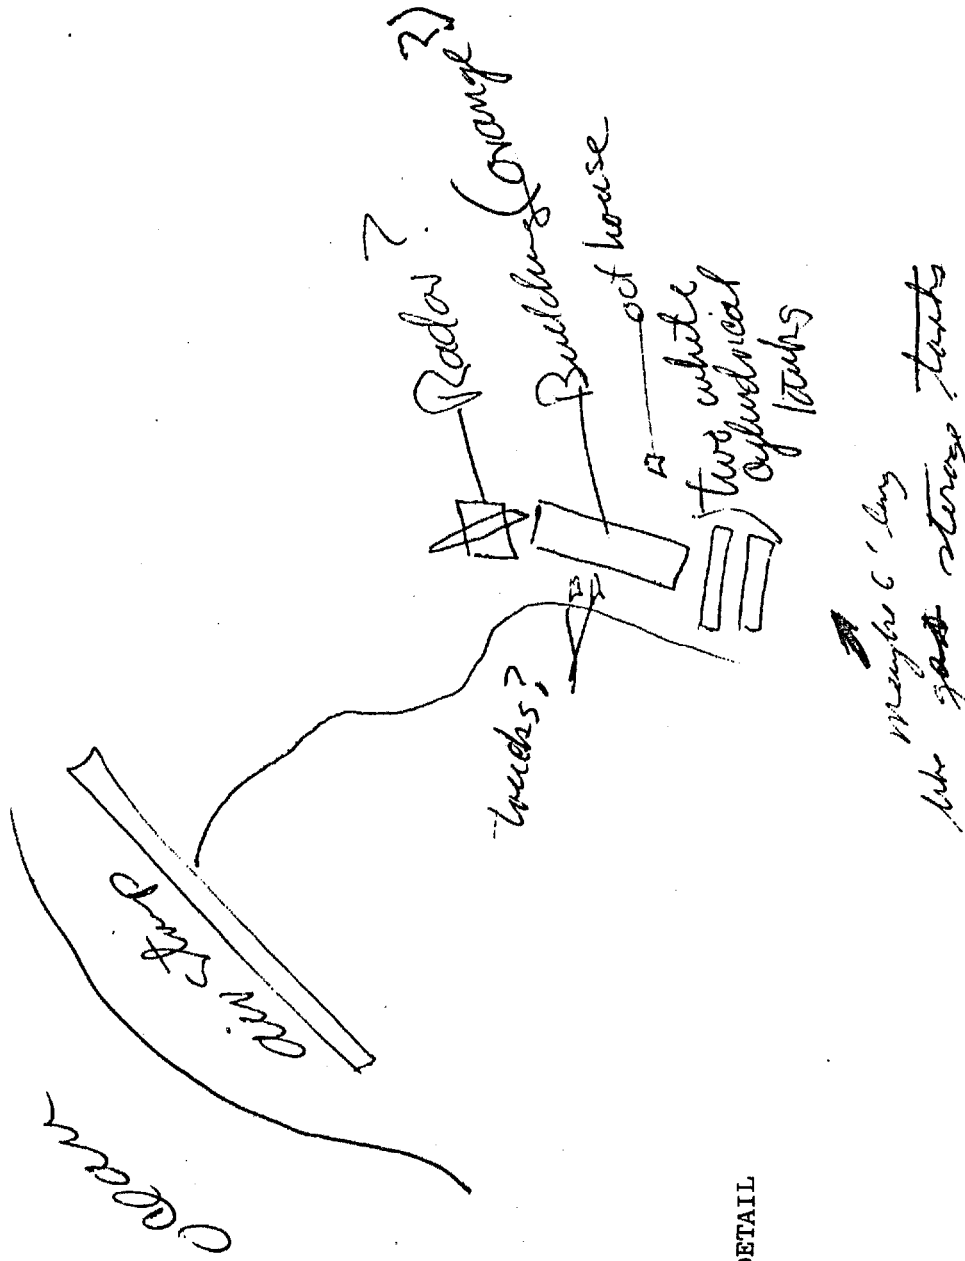 Ocean
air strip
Radar ?
Building (orange?)
out house
two white
cylindrical
tanks
trucks?
maybe 6' long
like gas storage tanks
DETAIL